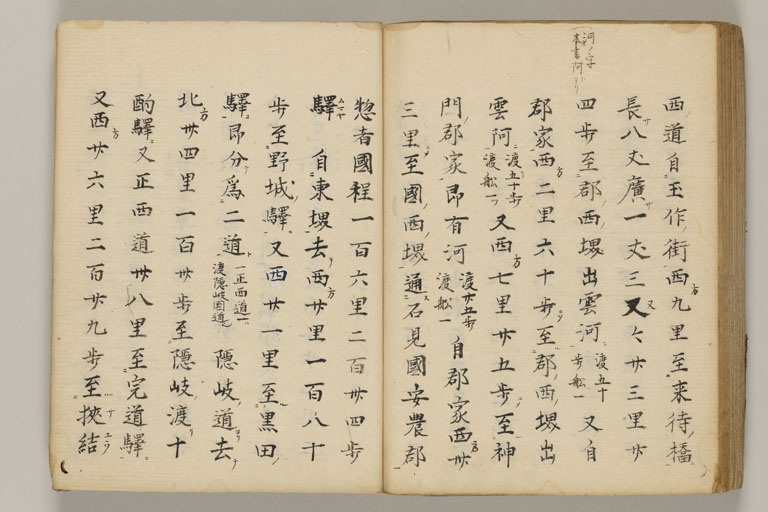 西道自玉作街西九里至来待橋
長八丈廣一丈三又々廿三里廿
四歩至郡西堺出雲河 渡五十歩船一 又自
郡家西二里六十歩至郡西堺出
雲河 渡五十歩渡船一 又西七里廿五歩至神
門郡家即有河 渡廿五歩渡船一 自郡家西卅
三里至國西堺通石見國安農郡
惣者國程一百六里二百卌四歩
驛 自東堺去西廿里一百八十
歩至野城驛又西廿一里至黒田
驛即分為二道 一正西道一渡隠岐国道 隠岐道去
北卅四里一百卅歩至隠岐渡十
酌驛又正西道卅八里至完道驛
又西廿六里二百廿九歩至挾結
河ノ字